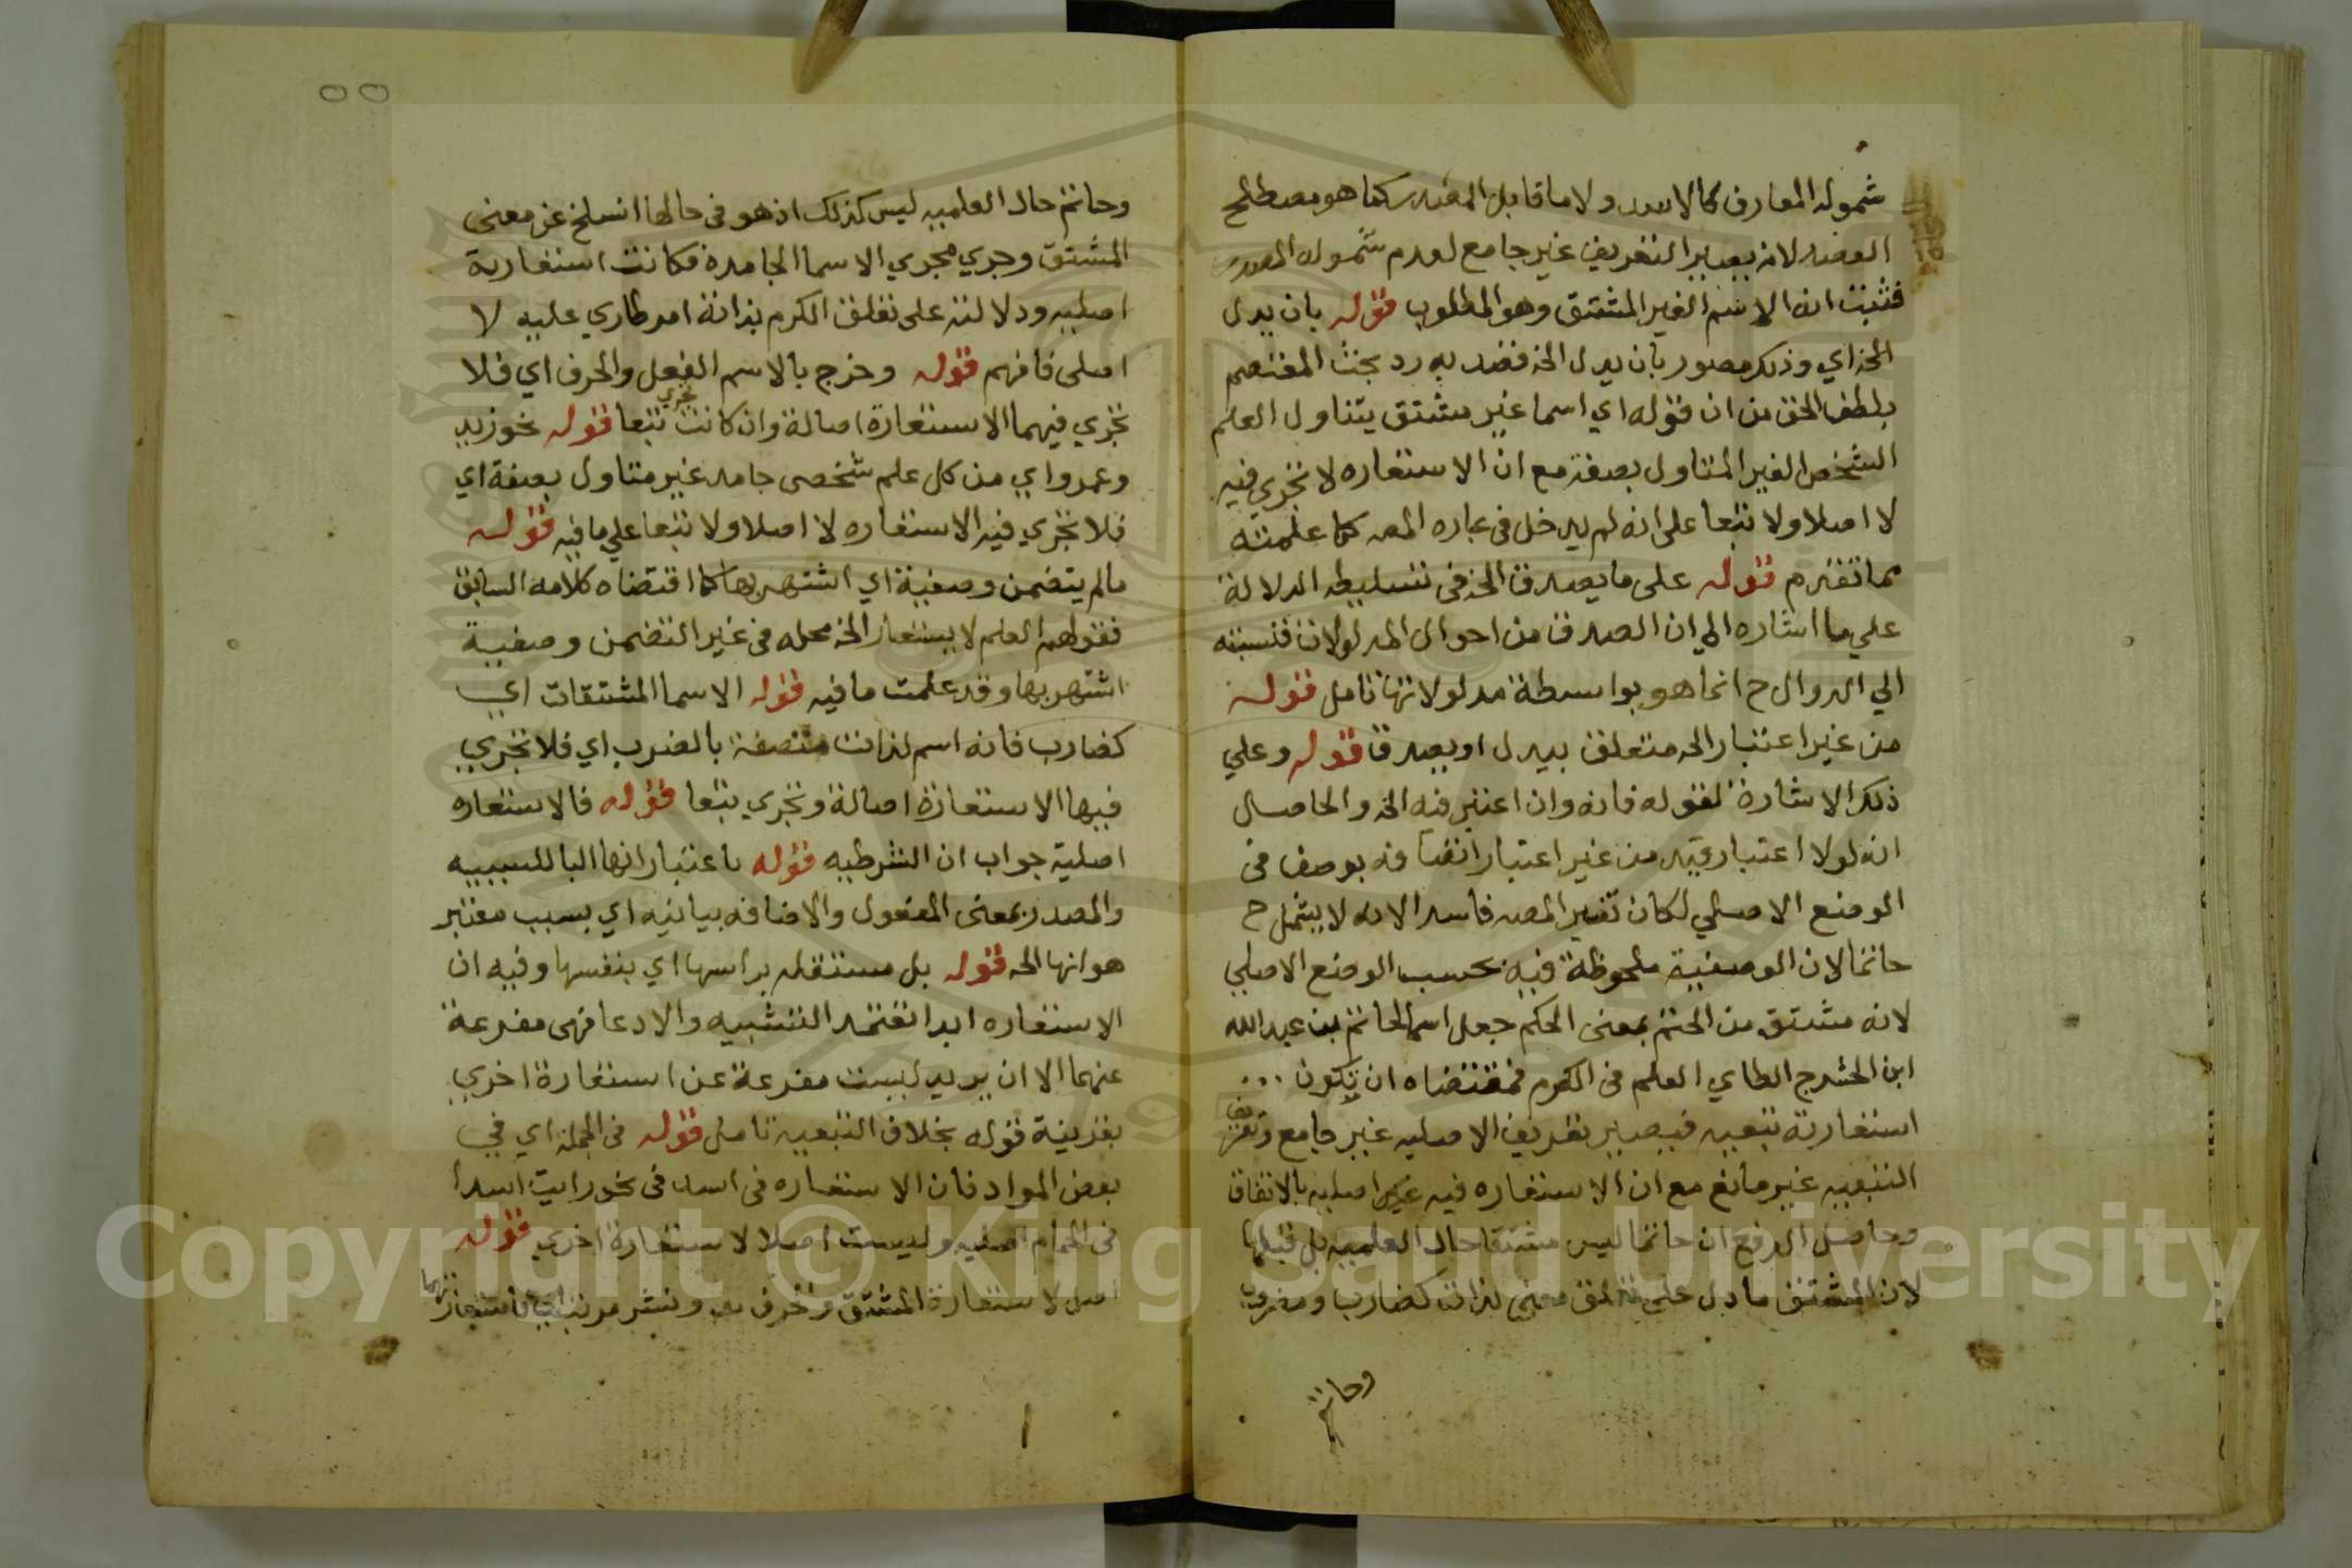 شموله المعارف كالاسد ولا ما قابل المصدر كما هو مصطلح
لانه يصير التعريف غير جامع لعدم شموله المصدر
فثبت انه الاسم الغير المشتق وهو المطلوب قوله بان يدل
الخ اي وذلك مصور بان يدل الخ فقصد به رد بحث المعتصم
بلطف الحق من ان قوله اي اسما غير مشتق يتناول العلم
الشخص الغير المتاول بصفة مع ان الاستعاره لا تجري فيه
لا اصلا ولا تبعا على انه لم يدخل في عباره المصـ كما علمته
مما تقدم قوله على ما يصدق الخ في تسليطه الدلالة
علي ما اشاره الي ان الصدق من احوال المدلولات فنسبته
الي الدوال ح انما هو بواسطة مدلولاتها تامل قوله
من غير اعتبار الخ متعلق بيدل او يصدق قوله وعلي
ذلك الاشارة لقوله فانه وان اعتبر فيه الخ والحاصل
انه لولا اعتبار قيد من غير اعتبار اتصافه بوصف في
الوضع الاصلي لكان تفسير المصـ فاسدا لانه لا يشمل ح
حاتما لان الوصفية ملحوظة فيه بحسب الوضع الاصلي
لانه مشتق من الحتم بمعنى الحكم جعل اسما لحاتم بن عبد الله
ابن الحشرج الطاي العلم في الكرم فمقتضاه ان تكون
استعارته تبعيه فيصير تعريف الاصليه غير جامع وتعريف
التبعيه غير مانع مع ان الاستعاره فيه اصليه بالاتفاق
وحاصل الدفع ان حاتما ليس مشتقا حال العلميه بل قبلها
لان المشتق ما دل على تعلق معنى بذات كضارب ومضروب
وحاتم
٥٥
وحاتم حال العلميه ليس كذلك اذ هو في حالها انسلخ عن معنى
المشتق وجري مجري الاسما الجامدة فكانت استعارته
اصليه ودلالته على تعلق الكرم بذاته امر طاري عليه لا
اصلي فافهم قوله وخرج بالاسم الفعل والحرف اي فلا
تجري فيهما الاستعارة اصالة وان كانت تجري تبعا قوله نحو زيد
وعمرو اي من كل علم شخصي جامد غير متاول بصفة اي
فلا تجري فيه الاستعاره لا اصلا ولا تبعا علي ما فيه قوله
مالم يتضمن وصفية اي اشتهر بها كما اقتضاه كلامه السابق
فقولهم العلم لا يستعار الخ محله في غير المتضمن وصفية
اشتهر بها وقد علمت ما فيه قوله الاسما المشتقات اي
كضارب فانه اسم لذات متصفة بالضرب اي فلا تجري
فيها الاستعارة اصالة وتجري تبعا قوله فالاستعاره
اصلية جواب ان الشرطيه قوله باعتبار انها البا للسببيه
والمصدر بمعنى المفعول والاضافه بيانيه اي بسبب معتبر
هو انها الخ قوله بل مستقله براسها اي بنفسها وفيه ان
الاستعاره ابدا تعتمد التشبيه والادعا فهي مفرعة
عنهما الا ان يريد ليست مفرعة عن استعارة اخري
بقرينة قوله بخلاف التبعيه تامل قوله في الجملة اي في
بعض المواد فان الاستعاره في اسد في نحو رايت اسدا
في الحمام اصليه وليست اصلا لاستعارة اخري قوله
اصل لاستعارة المشتق ونشر مرتب